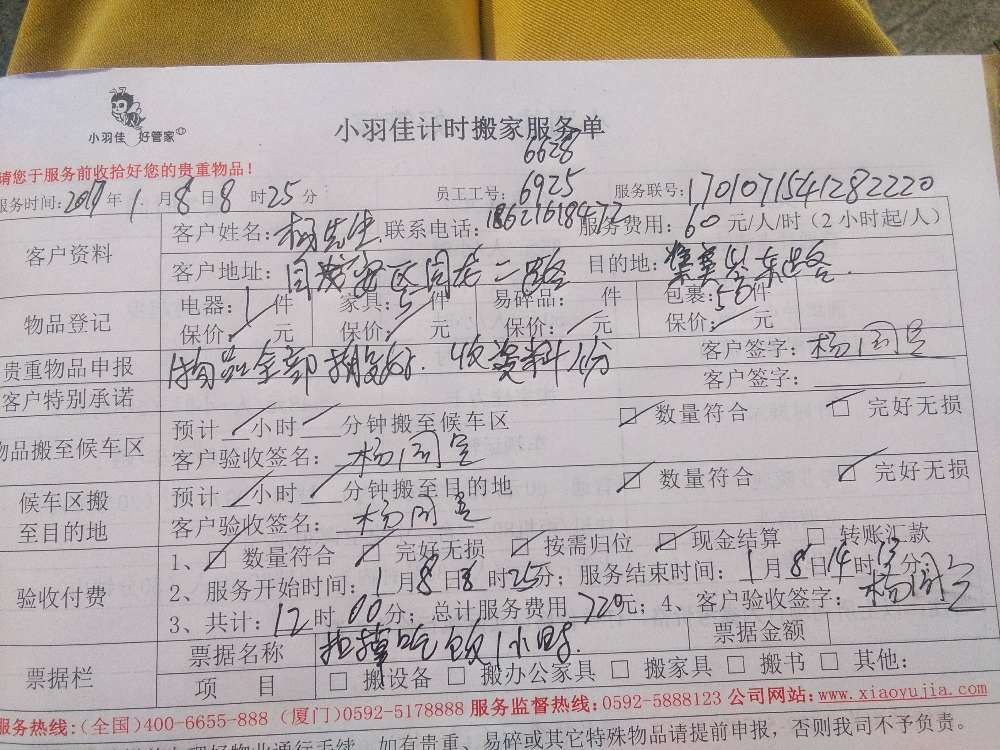 小羽佳 好管家
小羽佳计时搬家服务单
请您于服务前收拾好您的贵重物品！
6628
服务时间：2017年1月8日8时25分 员工工号：6925 服务联号：1701071541282220
客户资料 客户姓名：杨先生 联系电话：18621618472 服务费用：60元/人/时（2小时起/人）
客户地址： 二路 目的地：集美
物品登记 电器：1件 家具：5件 易碎品： 件 包裹：50件
保价： 元 保价： 元 保价： 元 保价： 元
贵重物品申报 物品全部搬好．收资料1份 客户签字：杨
客户特别承诺 客户签字：
物品搬至候车区 预计 小时 分钟搬至候车区 数量符合 完好无损
客户验收签名：杨
候车区搬至目的地 预计 小时 分钟搬至目的地 数量符合 完好无损
客户验收签名：杨
验收付费 1、 数量符合 完好无损 按需归位 现金结算 转账汇款
2、服务开始时间：1月8日8时25分；服务结束时间：1月8日14时 分；
3、共计：12时00分；总计服务费用720元；4、客户验收签字：杨
票据栏 票据名称 扣掉吃饭1小时. 票据金额
项 目 □ 搬设备 □ 搬办公家具 □ 搬家具 □ 搬书 □ 其他：
服务热线：（全国）400-6655-888（厦门）0592-5178888 服务监督热线：0592-5888123 公司网站：www.xiaoyujia.com
办理好物业通行手续，如有贵重、易碎或其它特殊物品请提前申报，否则我司不予负责。